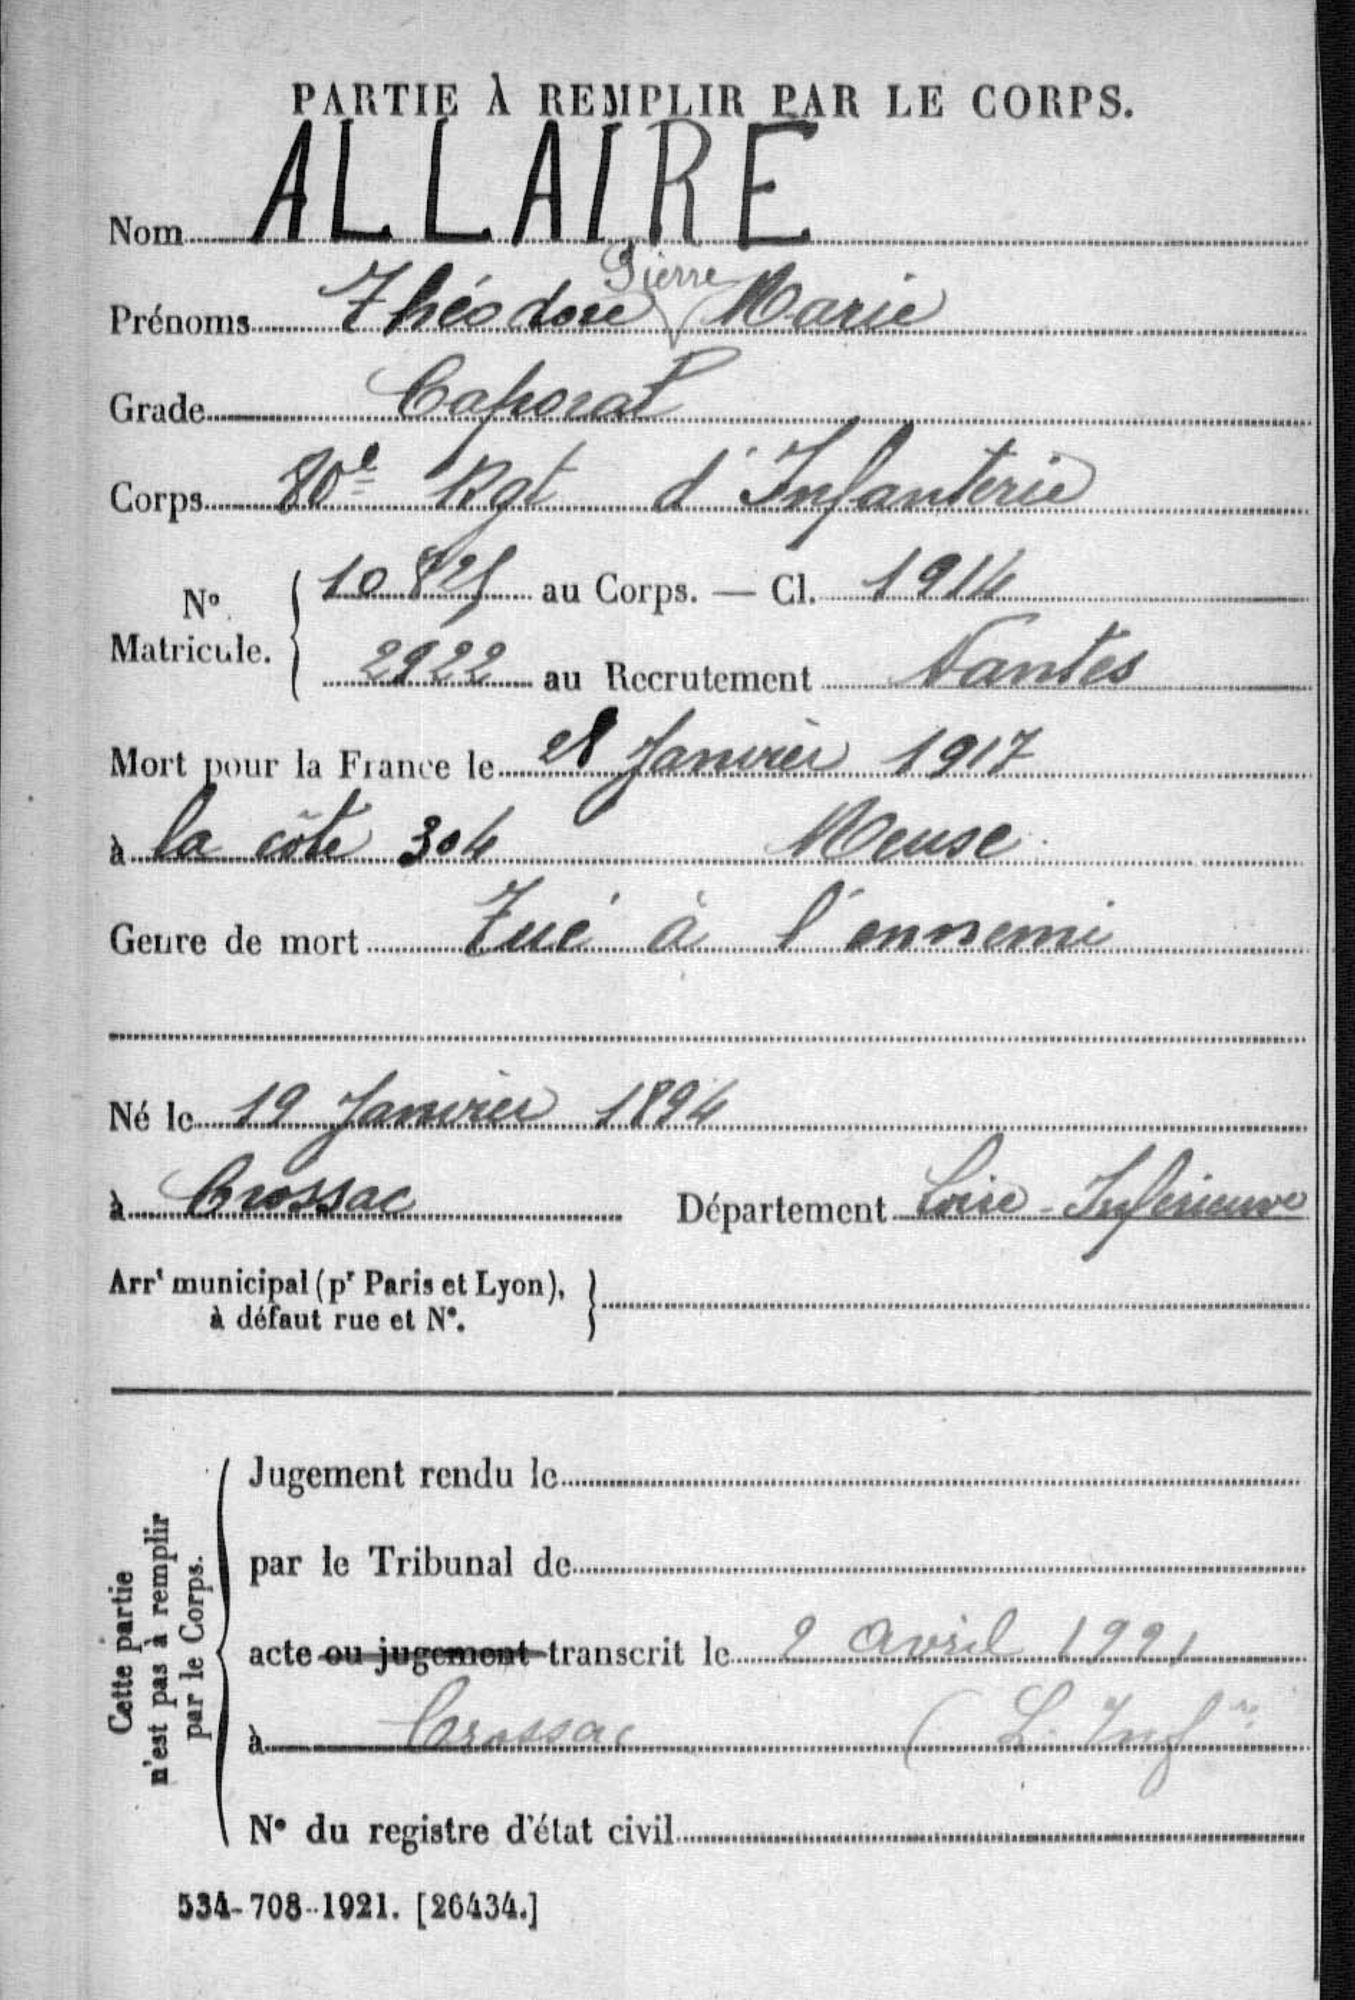 PARTIE À REMPLIR PAR LE CORPS.
Nom ALLAIRE
Pierre
Prénoms Théodore Marie
Grade Caporal
Corps 80e Rgt d'Infanterie
No Matricule. { 10825 au Corps. — Cl. 1914
2922 au Recrutement Nantes
Mort pour la France le 28 Janvier 1917
à la côte 304 Meuse
Genre de mort Tué à l'ennemi
Né le 19 Janvier 1894
à Crossac Département Loire-Inférieure
Arrt municipal (pr Paris et Lyon), à défaut rue et N°. }
Cette partie n'est pas à remplir par le Corps.
Jugement rendu le
par le Tribunal de
acte ou jugement transcrit le 2 avril 1921
à Crossac (L. Infre
N° du registre d'état civil
534-708-1921. [26434.]